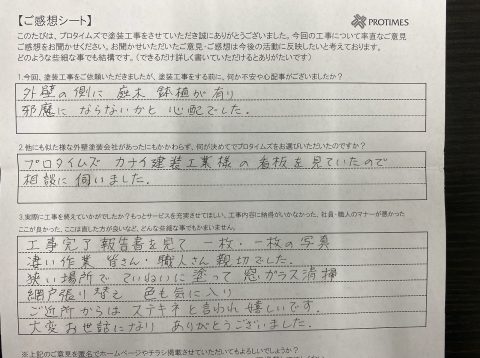 【ご感想シート】
PROTIMES
このたびは、プロタイムズで塗装工事をさせていただき誠にありがとうございました。今回の工事について率直なご意見
ご感想をお聞かせください。お聞かせいただいたご意見・ご感想は今後の活動に反映したいと考えております。
どのような些細な事でも結構です。（できるだけ詳しく書いていただけるとありがたいです）
1.今回、塗装工事をご依頼いただきましたが、塗装工事をする前に、何か不安や心配事がございましたか？
外壁の側に 庭木 鉢植が有り
邪魔に ならないかと 心配でした.
2.他にも似た様な外壁塗装会社があったにもかかわらず、何が決めてでプロタイムズをお選びいただいたのですか？
プロタイムズ カナイ建装工業様の看板を見ていたので
相談に 伺いました.
3.実際に工事を終えていかがでしたか？もっとサービスを充実させてほしい、工事内容に納得がいかなかった、社員・職人のマナーが悪かった
ここが良かった、ここは直した方が良いなど、どんな些細な事でもかまいません。
工事完了報告書を見て 一枚・一枚の写真
凄い作業 皆さん・職人さん親切でした.
狭い場所で ていねいに塗って 窓ガラス清掃
網戸張り替え 色も気に入り
ご近所からは ステキネと言われ嬉しいです.
大変お世話になり ありがとうございました.
※上記のご意見を匿名でホームページやチラシ掲載させていただいてもよろしいでしょうか？